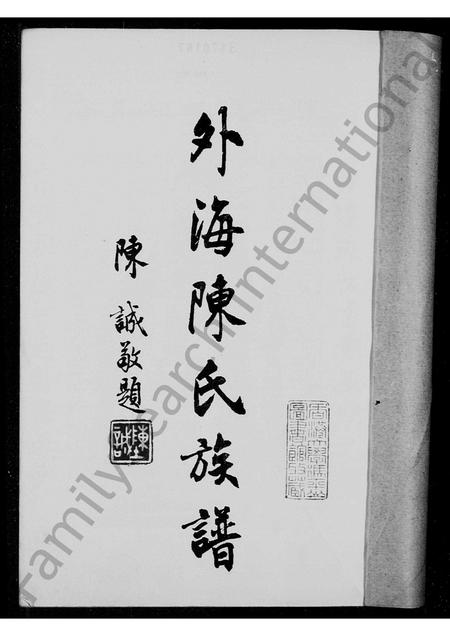 外海陳氏族譜
陳誠敬題
Family Search International